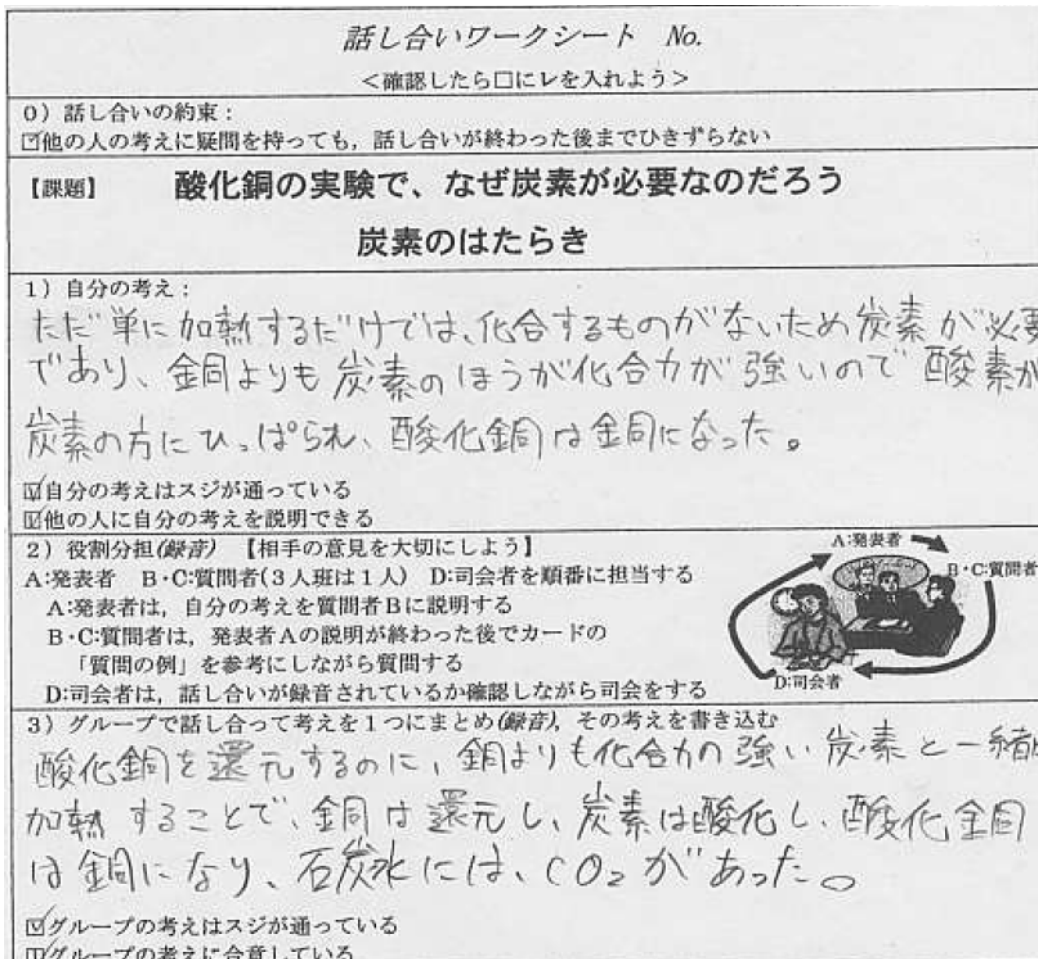 話し合いワークシート No.
<確認したら□にレを入れよう>
0)話し合いの約束:
☑他の人の考えに疑問を持っても,話し合いが終わった後までひきずらない
【課題】 酸化銅の実験で、なぜ炭素が必要なのだろう
炭素のはたらき
1)自分の考え:
ただ単に加熱するだけでは、化合するものがないため炭素が必要
であり、銅よりも炭素のほうが化合力が強いので酸素が
炭素の方にひっぱられ、酸化銅は銅になった。
☑自分の考えはスジが通っている
☑他の人に自分の考えを説明できる
2)役割分担(録音) 【相手の意見を大切にしよう】
A:発表者 B・C:質問者(3人班は1人) D:司会者を順番に担当する
A:発表者は,自分の考えを質問者Bに説明する
B・C:質問者は,発表者Aの説明が終わった後でカードの
「質問の例」を参考にしながら質問する
D:司会者は,話し合いが録音されているか確認しながら司会をする
A:発表者
B・C:質問者
D:司会者
3)グループで話し合って考えを1つにまとめ(録音),その考えを書き込む
酸化銅を還元するのに、銅よりも化合力の強い炭素と一緒に
加熱することで、銅は還元し、炭素は酸化し、酸化銅
は銅になり、石炭水には、CO₂があった。
☑グループの考えはスジが通っている
☑グループの考えに合意している